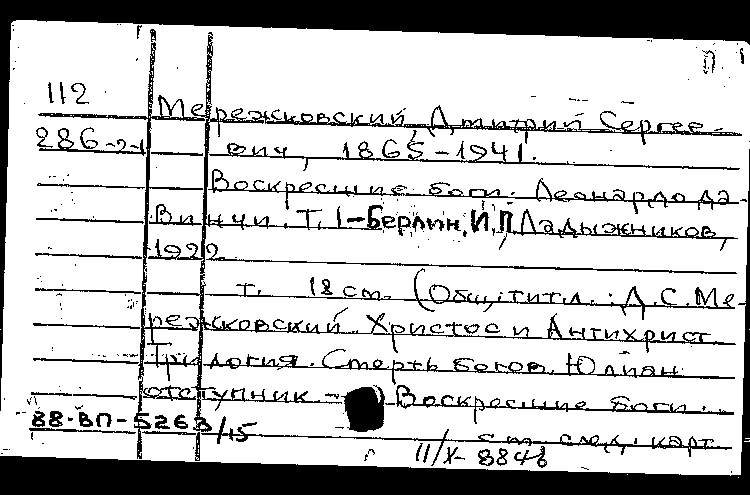 П
112 Мережковский, Дмитрий Сергее-
286-2-1 вич, 1865-1941.
Воскресшие боги. Леонардо да-
Винчи. Т. 1-Берлин, И.П. Ладыжников,
1922
т. 18 см. (Общ. титл.: Д.С. Ме-
режковский. Христос и Антихрист.
Трилогия. Смерть богов. Юлиан
отступник - Воскресшие боги.
88-ВП-5263/15 см. след. карт.
II/X-884б